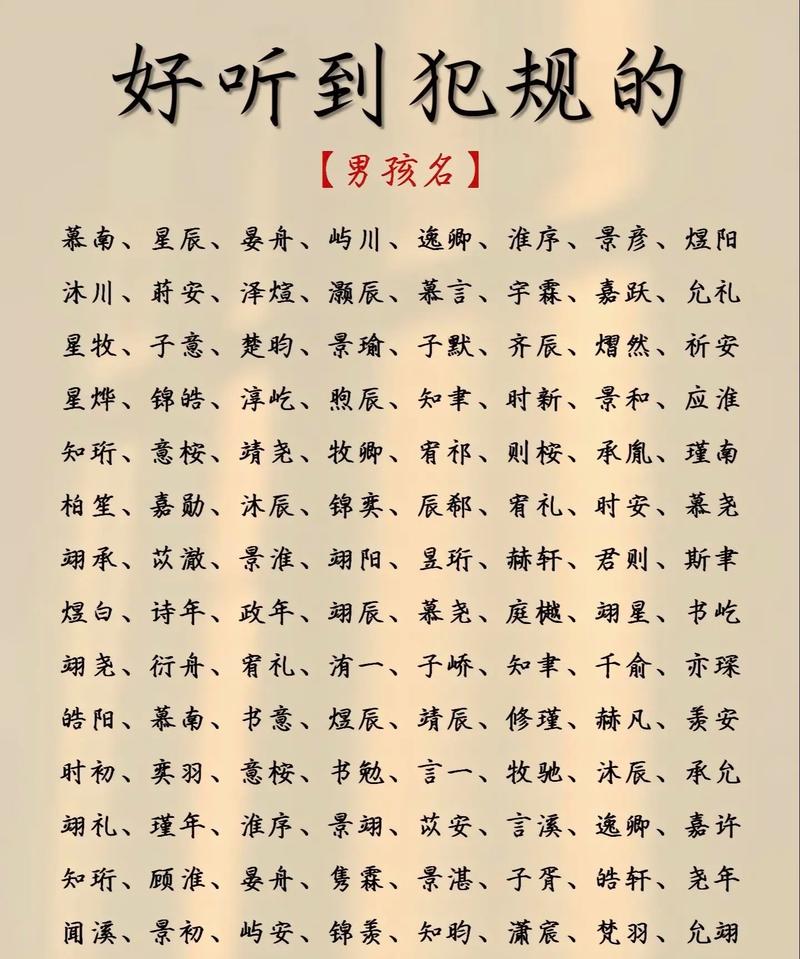 好听到犯规的
【男孩名】
慕南、星辰、晏舟、屿川、逸卿、淮序、景彦、煜阳
沐川、莳安、泽煊、灏辰、慕言、宇霖、嘉跃、允礼
星牧、子意、楚昀、景瑜、子默、齐辰、熠然、祈安
星烨、锦皓、淳屹、煦辰、知聿、时新、景和、应淮
知珩、意桉、靖尧、牧卿、宥祁、则桉、承胤、瑾南
柏笙、嘉勋、沐辰、锦奕、辰郗、宥礼、时安、慕尧
翊承、苡澈、景淮、翊阳、昱珩、赫轩、君则、斯聿
煜白、诗年、政年、翊辰、慕尧、庭樾、翊星、书屹
翊尧、衍舟、宥礼、洧一、子峤、知聿、千俞、亦琛
皓阳、慕南、书意、煜辰、靖辰、修瑾、赫凡、羡安
时初、奕羽、意桉、书勉、言一、牧驰、沐辰、承允
翊礼、瑾年、淮序、景翊、苡安、言溪、逸卿、嘉许
知珩、顾淮、晏舟、隽霖、景湛、子胥、皓轩、尧年
闻溪、景初、屿安、锦羡、知昀、潇宸、梵羽、允翊